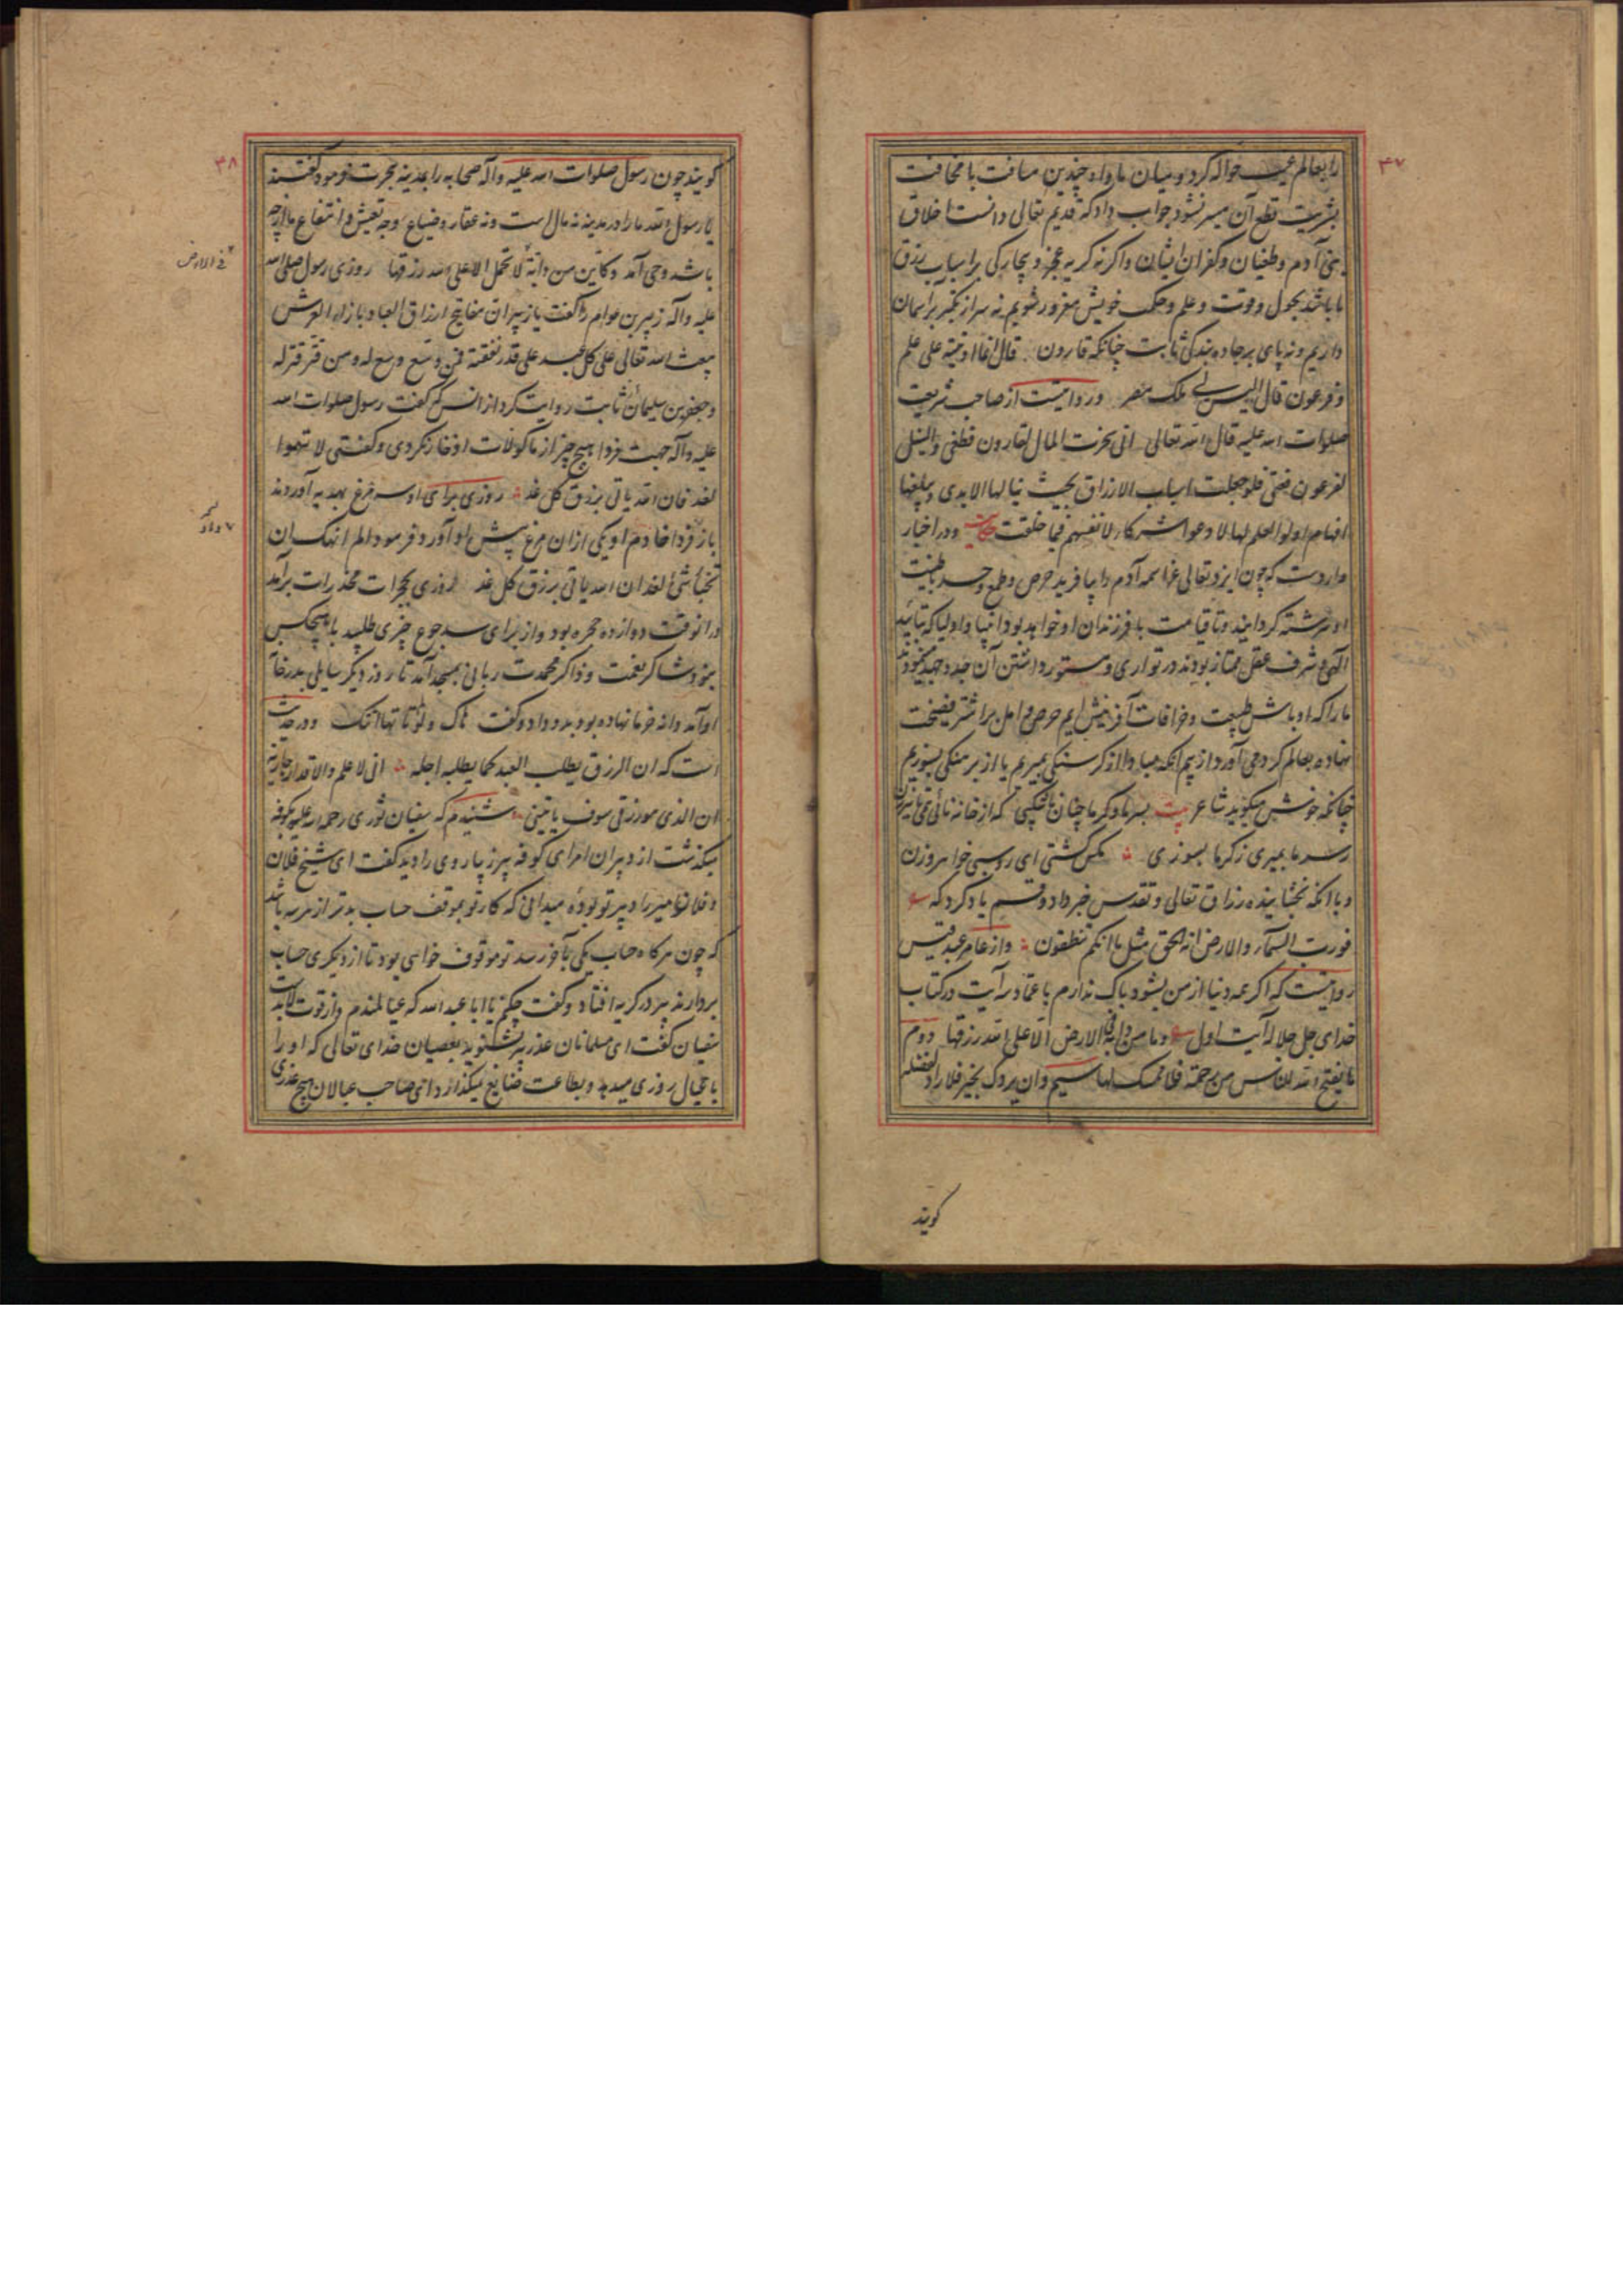 ۴۷
را بعالم غیب حواله کرد و میان ما و او چندین مسافت با مخافت
بشریت قطع آن میسر نشود جواب داد که قدیم تعالی دانست اخلاق
بنی آدم و طغیان و کفران ایشان و اگر نه گریه عجز و بیچارگی بر اسباب رزق
ما باشد بحول و قوت و علم و حکمت خویش مغرور شویم نه سر از تکبر بر آسمان
داریم و نه پای بر جاده بندگی ثابت چنانکه قارون قال انما اوتیته علی علم
و فرعون قال الیس لی ملک مصر و روایتست از صاحب شریعت
صلوات الله علیه قال الله تعالی انی سخرت المال لقارون فطغی والنیل
لفرعون فبغی فلو جعلت اسباب الارزاق بحیث ینالها الایدی و یبلغها
افهام اولو العلم لها لادعوا شرکاء لانفسهم فیما خلقت حکایت و در اخبار
وارد است که چون ایزد تعالی عز اسمه آدم را بیافرید حرص و طمع و حسد با طینت
او سرشته گردانید و تا قیامت با فرزندان او خواهد بود انبیا و اولیا که بتایید
الهی و شرف عقل ممتاز بودند در تواری و مستور داشتن آن جد و جهد مینمودند
ما را که اوباش طبیعت و خرافات آفرینش ایم حرص و امل بر اشتر فضیحت
نهاده بعالم گردمی آورد از بیم آنکه مبادا از گرسنگی بمیریم یا از برهنگی بسوزیم
چنانکه خوش میگوید شاعر بیت بسرما و گرما چنان
ز سرما بمیری ز گرما بسوزی مگس گشتی ای روسبی خواهر وزن
و با آنکه بخشاینده رزاق تعالی و تقدس خبر داد و قسم یاد کرد که
فورب السماء والارض انه لحق مثل ما انکم تنطقون و از عامر عبد قیس
روایتست که اگر همه دنیا از من بشود باک ندارم باعتماد سه آیت در کتاب
خدای جل جلاله آیت اول و ما من دابة فی الارض الا علی الله رزقها دوم
ما یفتح الله للناس من رحمة فلا ممسک لها سیم و ان یردک بخیر فلا راد لفضله
گویند
۳۸
گویند چون رسول صلوات الله علیه و آله صحابه را بمدینه هجرت فرمود گفتند
یا رسول الله ما را در مدینه نه مال است و نه عقار و ضیاع وجه تعیش و انتفاع ما از چه
باشد وحی آمد و کاین من دابة لا تحمل الا علی الله رزقها روزی رسول صلی الله
فی الارض
علیه و آله زبیر بن عوام را گفت یا زبیر ان مفاتیح ارزاق العباد بازاء العرش
یبعث الله تعالی علی کل عبد علی قدر نفقته فمن وسع وسع له و من قتر قتر له
و جعفر بن سلیمان ثابت روایت کرد از انس که گفت رسول صلوات الله
علیه و آله جهت فردا هیچ چیز از ماکولات ادخار نکردی و گفتی لا تهموا
لغد فان الله یاتی برزق کل غد روزی برای او سه مرغ بهدیه آوردند
باز فردا خادم او یکی ازان مرغ پیش او آورد فرمود الم انهک ان
تخبأ شئ لغد ان الله یاتی برزق کل غد روزی بحجرات مخدرات برآمد
درانوقت دوازده حجره بود و از برای سد جوع چیزی طلبید با هیچکس
نبود شاکر نعمت و ذاکر محمدت ربانی بمسجد آمد تا روز دیگر سایلی بدر خانه
او آمد دانه خرما نهاده بود بدو داد و گفت هاک و لو لم تاتها اتتک و در حدیث
است که ان الرزق یطلب العبد کما یطلبه اجله انی لاعلم والاقدار جاریة
ان الذی هو رزقی سوف یاتینی شنیدم که سفیان ثوری رحمه الله علیه بکوفه
میگذشت از دبیران امرای کوفه پیر زیاروی را دید گفت ای شیخ فلان
و فلان امیر را دبیر تو بودهٔ میدانی که کار تو بموقف حساب بدتر از هر سه باشد
که چون هرگاه حساب یکی بآخر رسد تو موقوف خواهی بود تا از دیگری حساب
بردارند پیر در گریه افتاد و گفت چکنم یا ابا عبد الله که عیالمندم و از قوت لابد است
سفیان گفت ای مسلمانان عذر پیر بشنوید بعصیان خدای تعالی که او را
با عیال روزی میدهد و بطاعت ضایع میگذارد این صاحب عیالان هیچ عذری